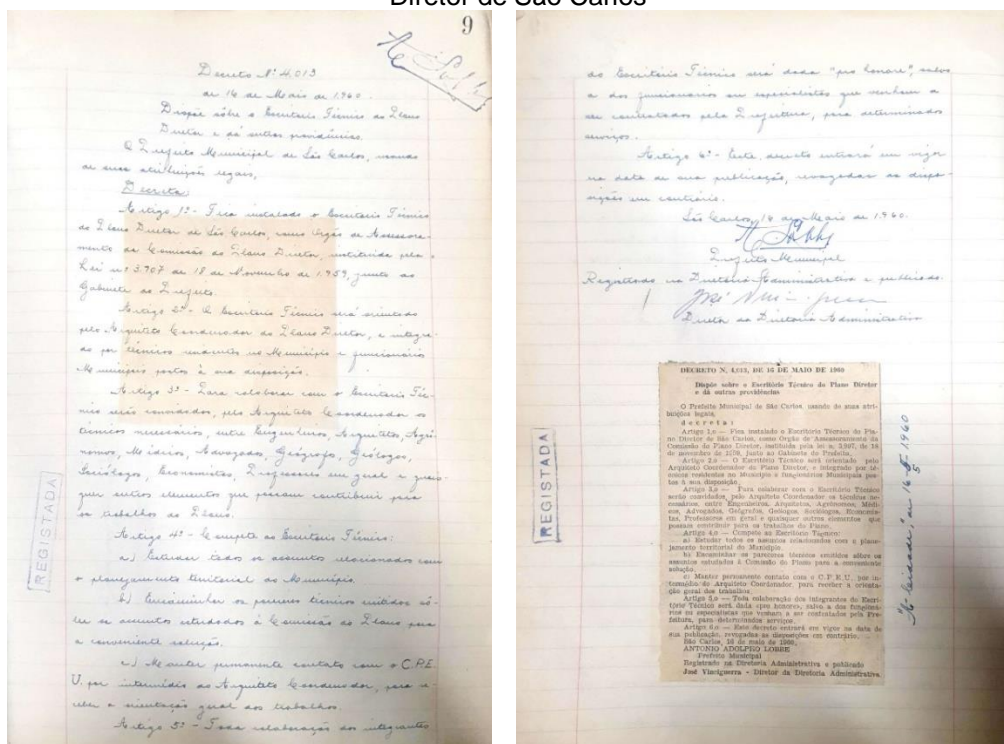 Diretor de São Carlos
9
Decreto Nº 4.013
de 16 de Maio de 1.960.
Dispõe sôbre o Escritório Técnico do Plano
Diretor e dá outras providências.
O Prefeito Municipal de São Carlos, usando
de suas atribuições legais,
Decreta:
Artigo 1º - Fica instalado o Escritório Técnico
do Plano Diretor de São Carlos, como Orgão de Assessora-
mento da Comissão do Plano Diretor, instituida pela
Lei nº 3.907 de 18 de Novembro de 1.959, junto ao
Gabinete do Prefeito.
Artigo 2º - O Escritório Técnico será orientado
pelo Arquiteto Coordenador do Plano Diretor, e integra-
do por técnicos residentes no Município e funcionários
Municipais postos à sua disposição.
Artigo 3º - Para colaborar com o Escritório Téc-
nico serão convidados, pelo Arquiteto Coordenador os
técnicos necessários, entre Engenheiros, Arquitetos, Agrô-
nomos, Médicos, Advogados, Geógrafos, Geólogos,
Sociólogos, Economistas, Professores em geral e quais-
quer outros elementos que possam contribuir para
os trabalhos do Plano.
Artigo 4º - Compete ao Escritório Técnico:
a) Estudar todos os assuntos relacionados com
o planejamento territorial do Município.
b) Encaminhar os pareceres técnicos emitidos sô-
bre os assuntos estudados à Comissão do Plano para
a conveniente solução.
c) Manter permanente contato com o C.P.E.
U. por intermédio do Arquiteto Coordenador, para re-
ceber a orientação geral dos trabalhos.
Artigo 5º - Toda colaboração dos integrantes
REGISTADA
do Escritório Técnico será dada "pro honore", salvo
a dos funcionarios ou especialistas que venham a
ser contratados pela Prefeitura, para determinados
serviços.
Artigo 6º - Este decreto entrará em vigor
na data de sua publicação, revogadas as dispo-
sições em contrário.
São Carlos, 16 de Maio de 1.960.
Prefeito Municipal
Registrado na Diretoria Administrativa e publicado.
Diretor da Diretoria Administrativa
DECRETO N. 4.013, DE 16 DE MAIO DE 1960
Dispõe sobre o Escritório Técnico do Plano Diretor
e dá outras providências
O Prefeito Municipal de São Carlos, usando de suas atri-
buições legais,
decreta:
Artigo 1.o — Fica instalado o Escritório Técnico do Pla-
no Diretor de São Carlos, como Orgão de Assessoramento da
Comissão do Plano Diretor, instituida pela lei n. 3.907, de 18
de novembro de 1959, junto ao Gabinete do Prefeito.
Artigo 2.o — O Escritório Técnico será orientado pelo
Arquiteto Coordenador do Plano Diretor, e integrado por téc-
nicos residentes no Município e funcionários Municipais pos-
tos à sua disposição.
Artigo 3.o — Para colaborar com o Escritório Técnico
serão convidados, pelo Arquiteto Coordenador os técnicos ne-
cessários, entre Engenheiros, Arquitetos, Agrônomos, Médi-
cos, Advogados, Geógrafos, Geólogos, Sociólogos, Economis-
tas, Professores em geral e quaisquer outros elementos que
possam contribuir para os trabalhos do Plano.
Artigo 4.o — Compete ao Escritório Técnico:
a) Estudar todos os assuntos relacionados com o plane-
jamento territorial do Município.
b) Encaminhar os pareceres técnicos emitidos sôbre os
assuntos estudados à Comissão do Plano para a conveniente
solução.
c) Manter permanente contato com o C.P.E.U. por in-
termédio do Arquiteto Coordenador, para receber a orienta-
ção geral dos trabalhos.
Artigo 5.o — Toda colaboração dos integrantes do Escri-
tório Técnico será dada «pro honore», salvo a dos funcioná-
rios ou especialistas que venham a ser contratados pela Pre-
feitura, para determinados serviços.
Artigo 6.o — Este decreto entrará em vigor na data de
sua publicação, revogadas as disposições em contrário.
São Carlos, 16 de maio de 1960.
ANTONIO ADOLPHO LOBBE
Prefeito Municipal
Registrado na Diretoria Administrativa e publicado
José Vinciguerra - Diretor da Diretoria Administrativa.
REGISTADA
"A Cidade", em 16-5-1960